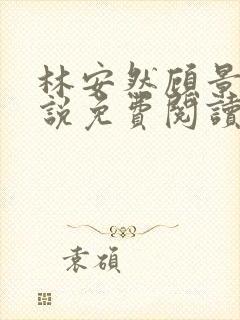 林安然顾景
說免費閱讀
袁碩